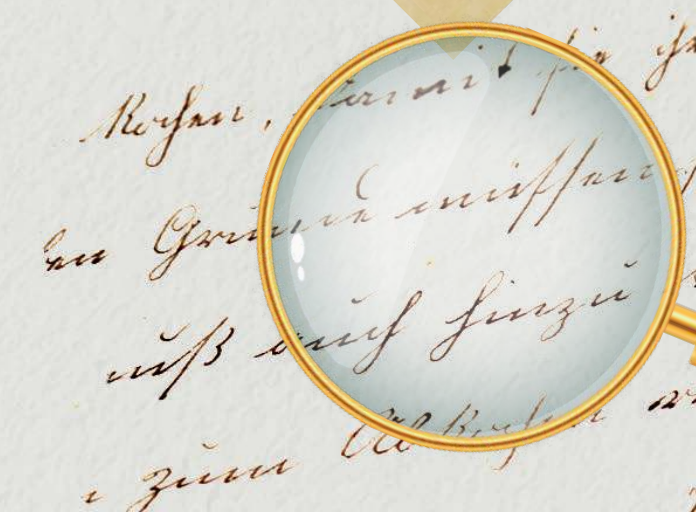 Kochen, damit sie
en Grunde müssen
muß auch hinzu
zum Abkochen